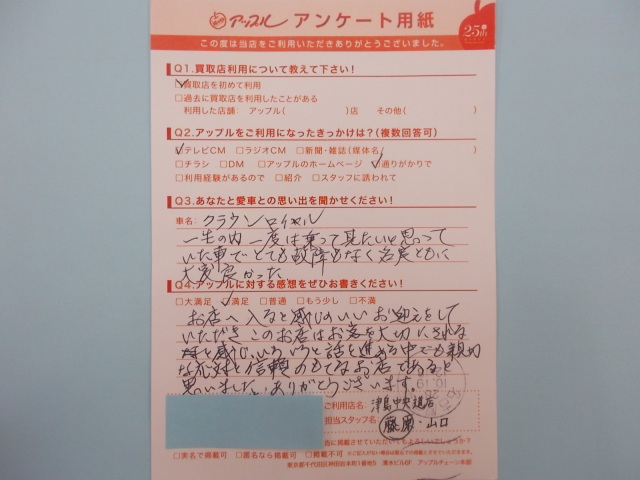 アップル アンケート用紙
25th
この度は当店をご利用いただきありがとうございました。
Q1.買取店利用について教えて下さい!
☑買取店を初めて利用
□過去に買取店を利用したことがある
利用した店舗: アップル( )店 その他( )
Q2.アップルをご利用になったきっかけは?(複数回答可)
☑テレビCM □ラジオCM □新聞・雑誌(媒体名/ )
□チラシ □DM □アップルのホームページ ☑通りがかりで
□利用経験があるので □紹介 □スタッフに誘われて
Q3.あなたと愛車との思い出を聞かせください!
車名: クラウンロイヤル
一生の内一度は乗って見たいと思って
いた車でとても故障もなく名実ともに
大変良かった
Q4.アップルに対する感想をぜひお書きください!
□大満足 ☑満足 □普通 □もう少し □不満
お店へ入ると感じのいいお迎えをして
いただき このお店はお客を大切にされる
な と感じ、いろいろと話を進める中でも親切
な応対と信頼のもてるお店であると
思いました。ありがとうございます。
ご利用店名: 津島中央道店
担当スタッフ名 藤原・山口
に掲載させていただいてもよろしいでしょうか?
□実名で掲載可 □匿名なら掲載可 □掲載不可
東京都千代田区神田司本町1番地5 清水ビル6F アップルチェーン本部